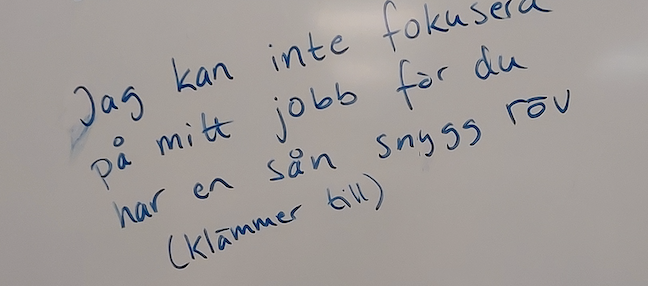 Jag kan inte fokusera
på mitt jobb för du
har en sån snygg röv
(klämmer till)